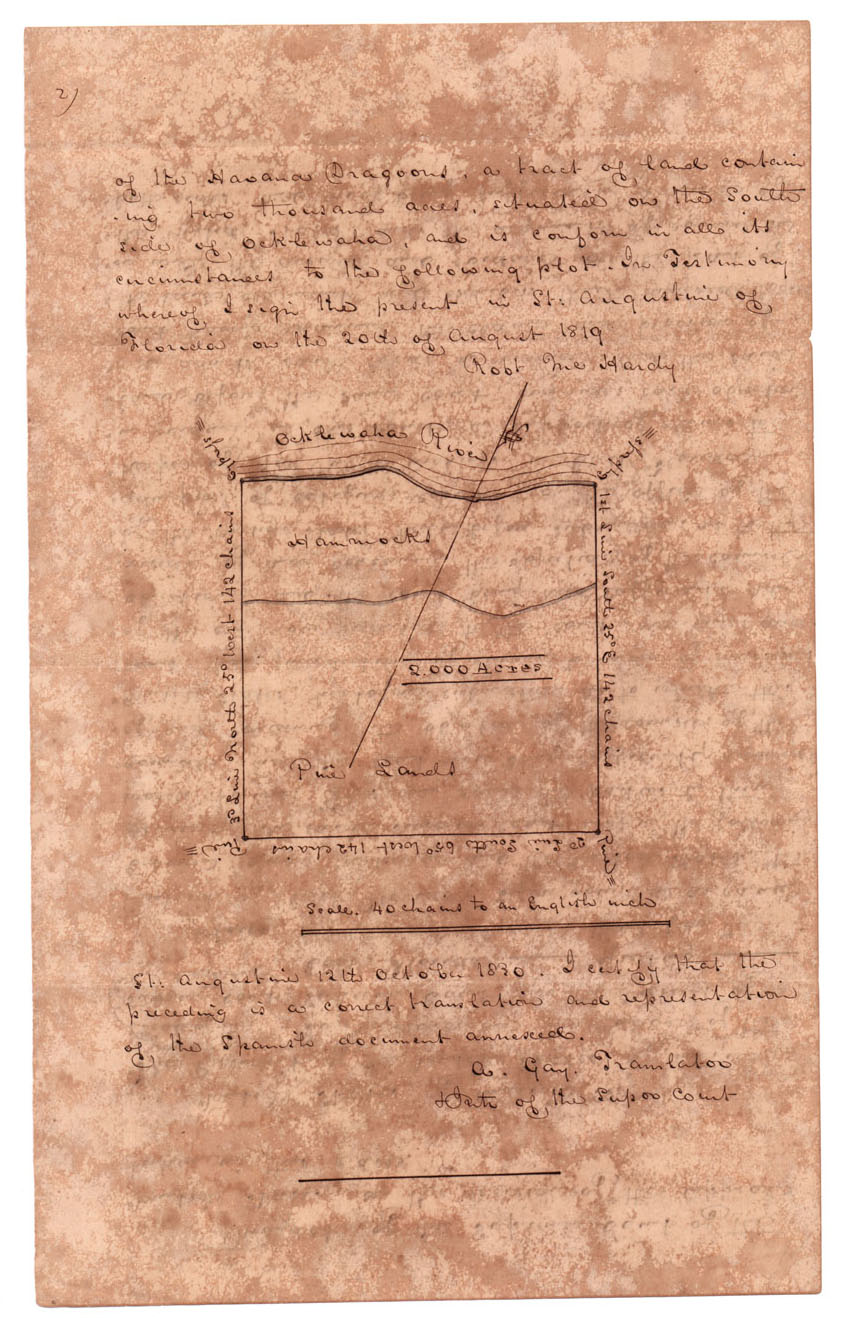 2)
of the Havana Dragoons, a tract of land contain
-ing two thousand acres, situated on the South
side of Ocklewaha, and is conform in all its
circumstances to the following plot. In Testimony
whereof I sign the present in St. Augustine of
Florida on the 20th of August 1819
Robt McHardy
Ocklewaha River
Cypress =
Cypress =
Hammocks
1st Line South 25° E 142 chains
3d Line North 25° West 142 chains
2.000 Acres
Pine Lands
Pine =
2d Line South 65° West 142 chains
Pine =
Scale. 40 chains to an English inch
St. Augustine 12th October 1830. I certify that the
preceding is a correct translation and representation
of the Spanish document annexed.
A. Gay. Translator
& Intr of the Supor Court